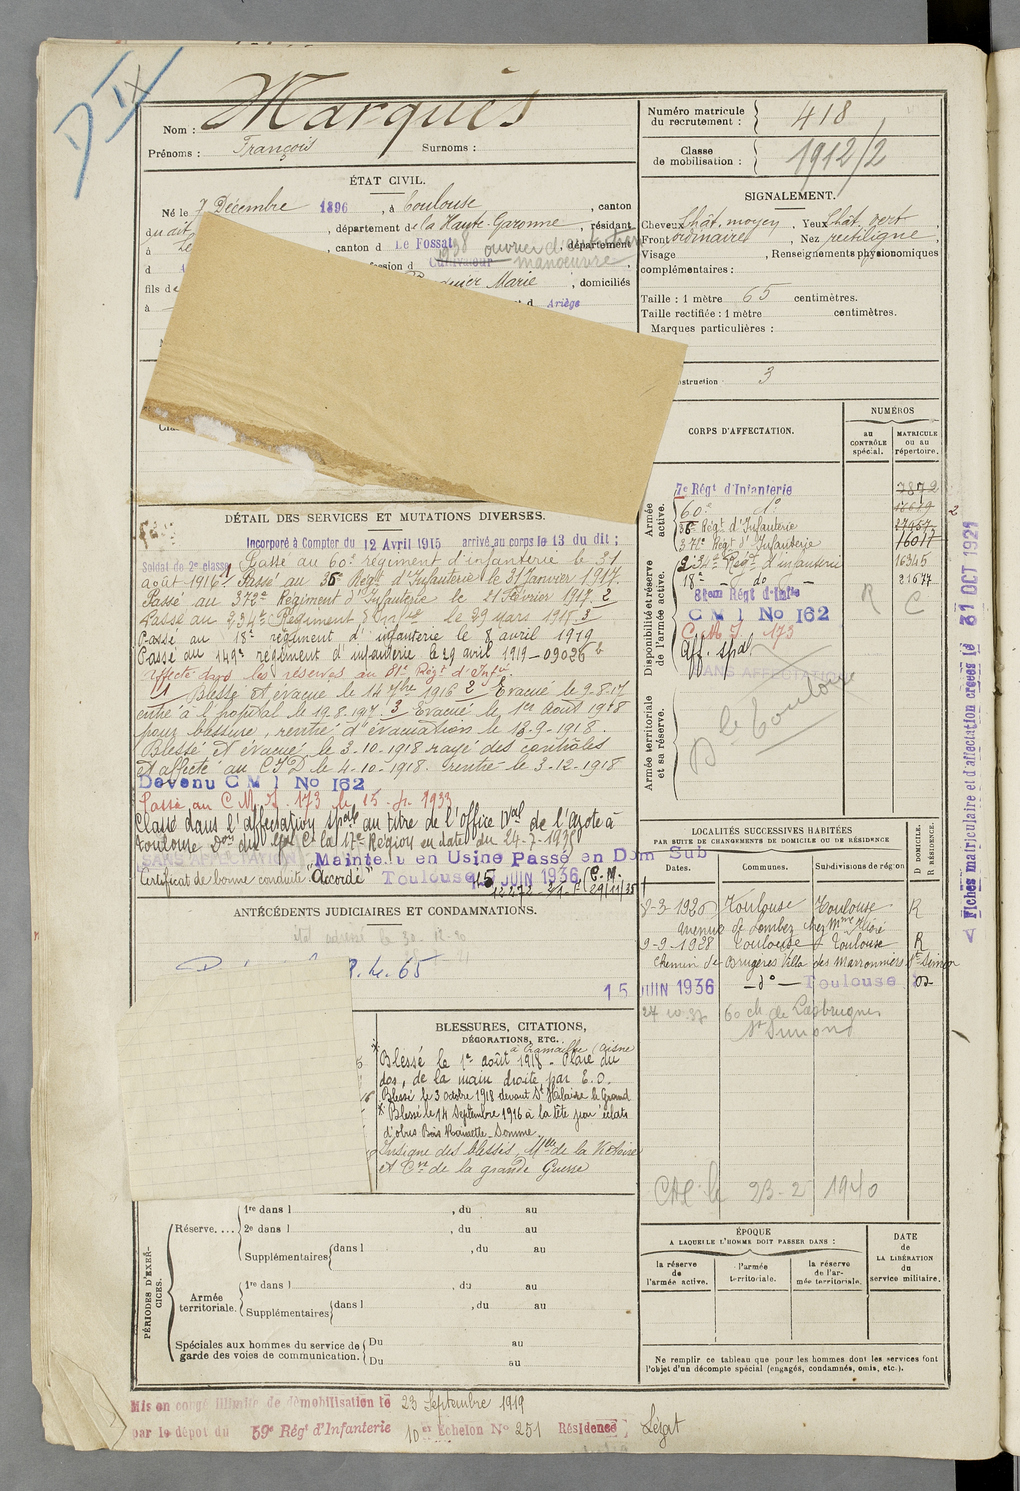 D IX
Marquès
Nom :
Prénoms : François Surnoms :
Numéro matricule du recrutement : 418
Classe de mobilisation : 1912/2
ÉTAT CIVIL.
Né le 7 Décembre 1896, à Toulouse, canton
du dit, département de la Haute-Garonne, résidant
à Le, canton d Le Fossat, département
d A profession d Cultivateur manœuvre
fils de Marie, domiciliés
à Ariège
SIGNALEMENT.
Cheveux Chât. moyen. Yeux Chât. vert,
Front ordinaire, Nez rectiligne,
Visage , Renseignements physionomiques
complémentaires :
Taille : 1 mètre 65 centimètres.
Taille rectifiée : 1 mètre centimètres.
Marques particulières :
struction 3
CORPS D'AFFECTATION.
NUMÉROS
au CONTRÔLE spécial.
MATRICULE ou au répertoire.
Armée active.
7e Régt d'Infanterie 7872
60e do
36e Régt d'Infanterie
37e Régt d'Infanterie 16017
Disponibilité et réserve de l'armée active.
234e Régt d'infanterie 16345
18e - do - 21677
81em Régt d'Infie
R C
C M I No 162
C. M. I. 173
Aff. spale
SANS AFFECTATION
Armée territoriale et sa réserve.
D le Toulouse
DÉTAIL DES SERVICES ET MUTATIONS DIVERSES.
Incorporé à Compter du 12 Avril 1915 arrivé au corps le 13 du dit ;
Soldat de 2e classe Passé au 60e régiment d'infanterie le 31
août 1916. Passé au 36e Régt d'Infanterie le 31 Janvier 1917.
Passé au 372e Régiment d'Infanterie le 21 Février 1917. 2
Passé au 234e Régiment d'Infie le 29 mars 1917. 3
Passé au 18e régiment d'infanterie le 8 avril 1919
Passé au 149e régiment d'infanterie le 29 avril 1919 - 09026 b
Affecté dans les réserves au 81e Régt d'Infie
1 Blessé et évacué le 14 7bre 1916 2 Evacué le 9.8.17
entré à l'hôpital le 19.8.1917. 3 Evacué le 1er Août 1918
pour blessure, rentré d'évacuation le 18-9-1918.
Blessé et évacué le 3-10-1918 rayé des contrôles
et affecté au CID le 4-10-1918. rentré le 3-12-1918
Devenu C M I No 162
Passé au C. M. I. 173 le 15. 1933
Classé dans l'affectation spale au titre de l'office Nal de l'azote à
Toulouse Don du Gal Ct la 17e Région en date du 24-7-1935
SANS AFFECTATION Maintenu en Usine Passé en Dom Sub
Certificat de bonne conduite "Accordé" Toulouse 15 JUIN 1936
ANTÉCÉDENTS JUDICIAIRES ET CONDAMNATIONS.
P. h. 65
15 JUIN 1936
BLESSURES, CITATIONS,
DÉCORATIONS, ETC.
à Cramaille (Aisne
Blessé le 1er août 1918 - Plaie du
dos, de la main droite par E.O.
Blessé le 3 octobre 1918 devant St Hilaire le Grand
Blessé le 14 Septembre 1916 à la tête par éclats
d'obus Bois Somme.
Insigne des blessés, Mlle de la Victoire
et Cve de la grande Guerre
LOCALITÉS SUCCESSIVES HABITÉES
PAR SUITE DE CHANGEMENTS DE DOMICILE OU DE RÉSIDENCE
Dates.
Communes.
Subdivisions de région
D DOMICILE. R RÉSIDENCE.
8-3-1920 Toulouse Toulouse R
avenue de Lombez chez Mme
9-9-1928 Toulouse Toulouse R
Chemin de Brugères Villa des Marronniers St Simon
- do - Toulouse
24 10 37 60 ch. de
St Simon
23-2 1940
ÉPOQUE
A LAQUELLE L'HOMME DOIT PASSER DANS :
la réserve de l'armée active.
l'armée territoriale.
la réserve de l'armée territoriale.
DATE de LA LIBÉRATION du service militaire.
Ne remplir ce tableau que pour les hommes dont les services font
l'objet d'un décompte spécial (engagés, condamnés, omis, etc.).
PÉRIODES D'EXERCICES.
Réserve....
1re dans l , du au
2e dans l , du au
Supplémentaires dans l , du au
Armée territoriale.
1re dans l , du au
Supplémentaires dans l , du au
Spéciales aux hommes du service de garde des voies de communication.
Du au
Du au
Mis en congé illimité de démobilisation le 23 Septembre 1919
par le dépôt du 59e Régt d'Infanterie 10er Echelon No 251 Résidence ; Lézat
Fiches matriculaire et d'affectation créées le 31 OCT 1921